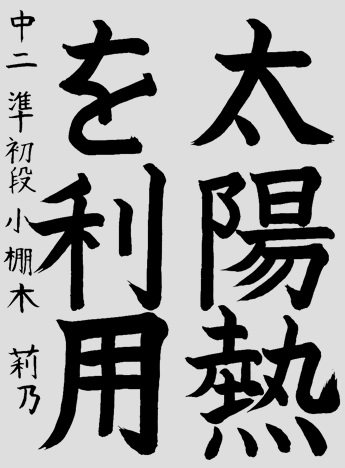 太陽熱
を利用
中二 準初段 小棚木 莉乃